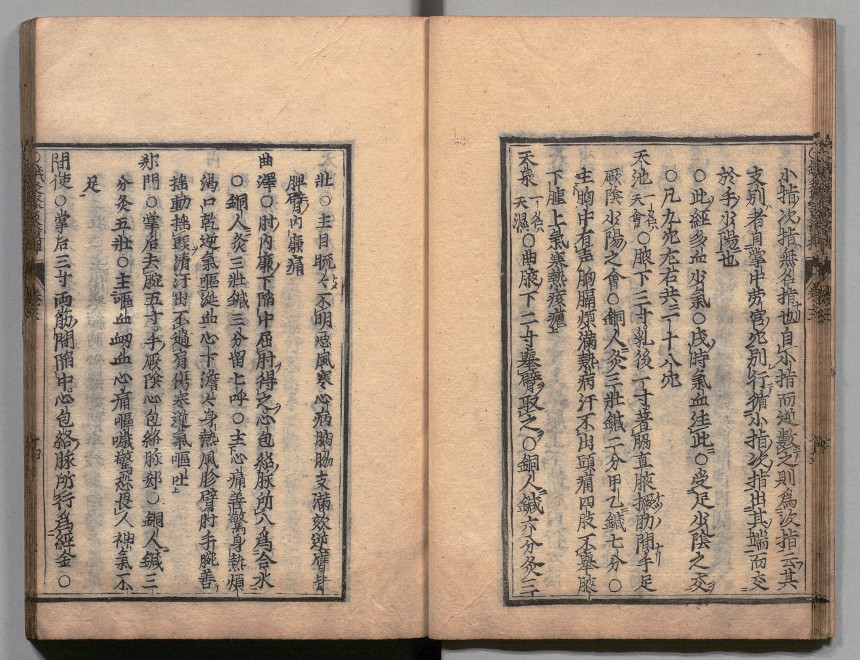 小指次指無名指也自小指而逆數之則爲次指云其
支別者自掌中旁宮穴別行循小指次指出其端而交
於手少陽也
○此經多血少氣○戌時氣血注此○受足少陰之交
○凡九穴左右共二十八穴
天池一名天會○腋下三寸乳後一寸著脇直腋撅肋間手足
厥陰少陽之會○銅人灸三壯鍼二分甲乙鍼七分○
主胸中有声胸膈煩滿熱病汗不出頭痛四肢不舉腋
下腫上氣寒熱痎瘧
天泉一名天濕○曲腋下二寸舉臂取之○銅人鍼六分灸三
壯○主目䀮々不明惡風寒心病胸脇支滿欬逆膺背
胛臂内廉痛
曲澤○肘内廉下陷中屈肘得之心包絡脉所入爲合水
○銅人灸三壯鍼三分留七呼○主心痛善驚身熱煩
渴口乾逆氣嘔涎血心下澹々身熱風胗臂肘手腕善
搖動搖頭清汗出不過肩傷寒逆氣嘔吐
郄門○掌后去腕五寸手厥陰心包絡脉郄○銅人鍼三
分灸五壯○主嘔血衂血心痛嘔噦驚恐畏人神氣不
足
間使○掌后三寸兩筋間陷中心包絡脉所行爲經金○